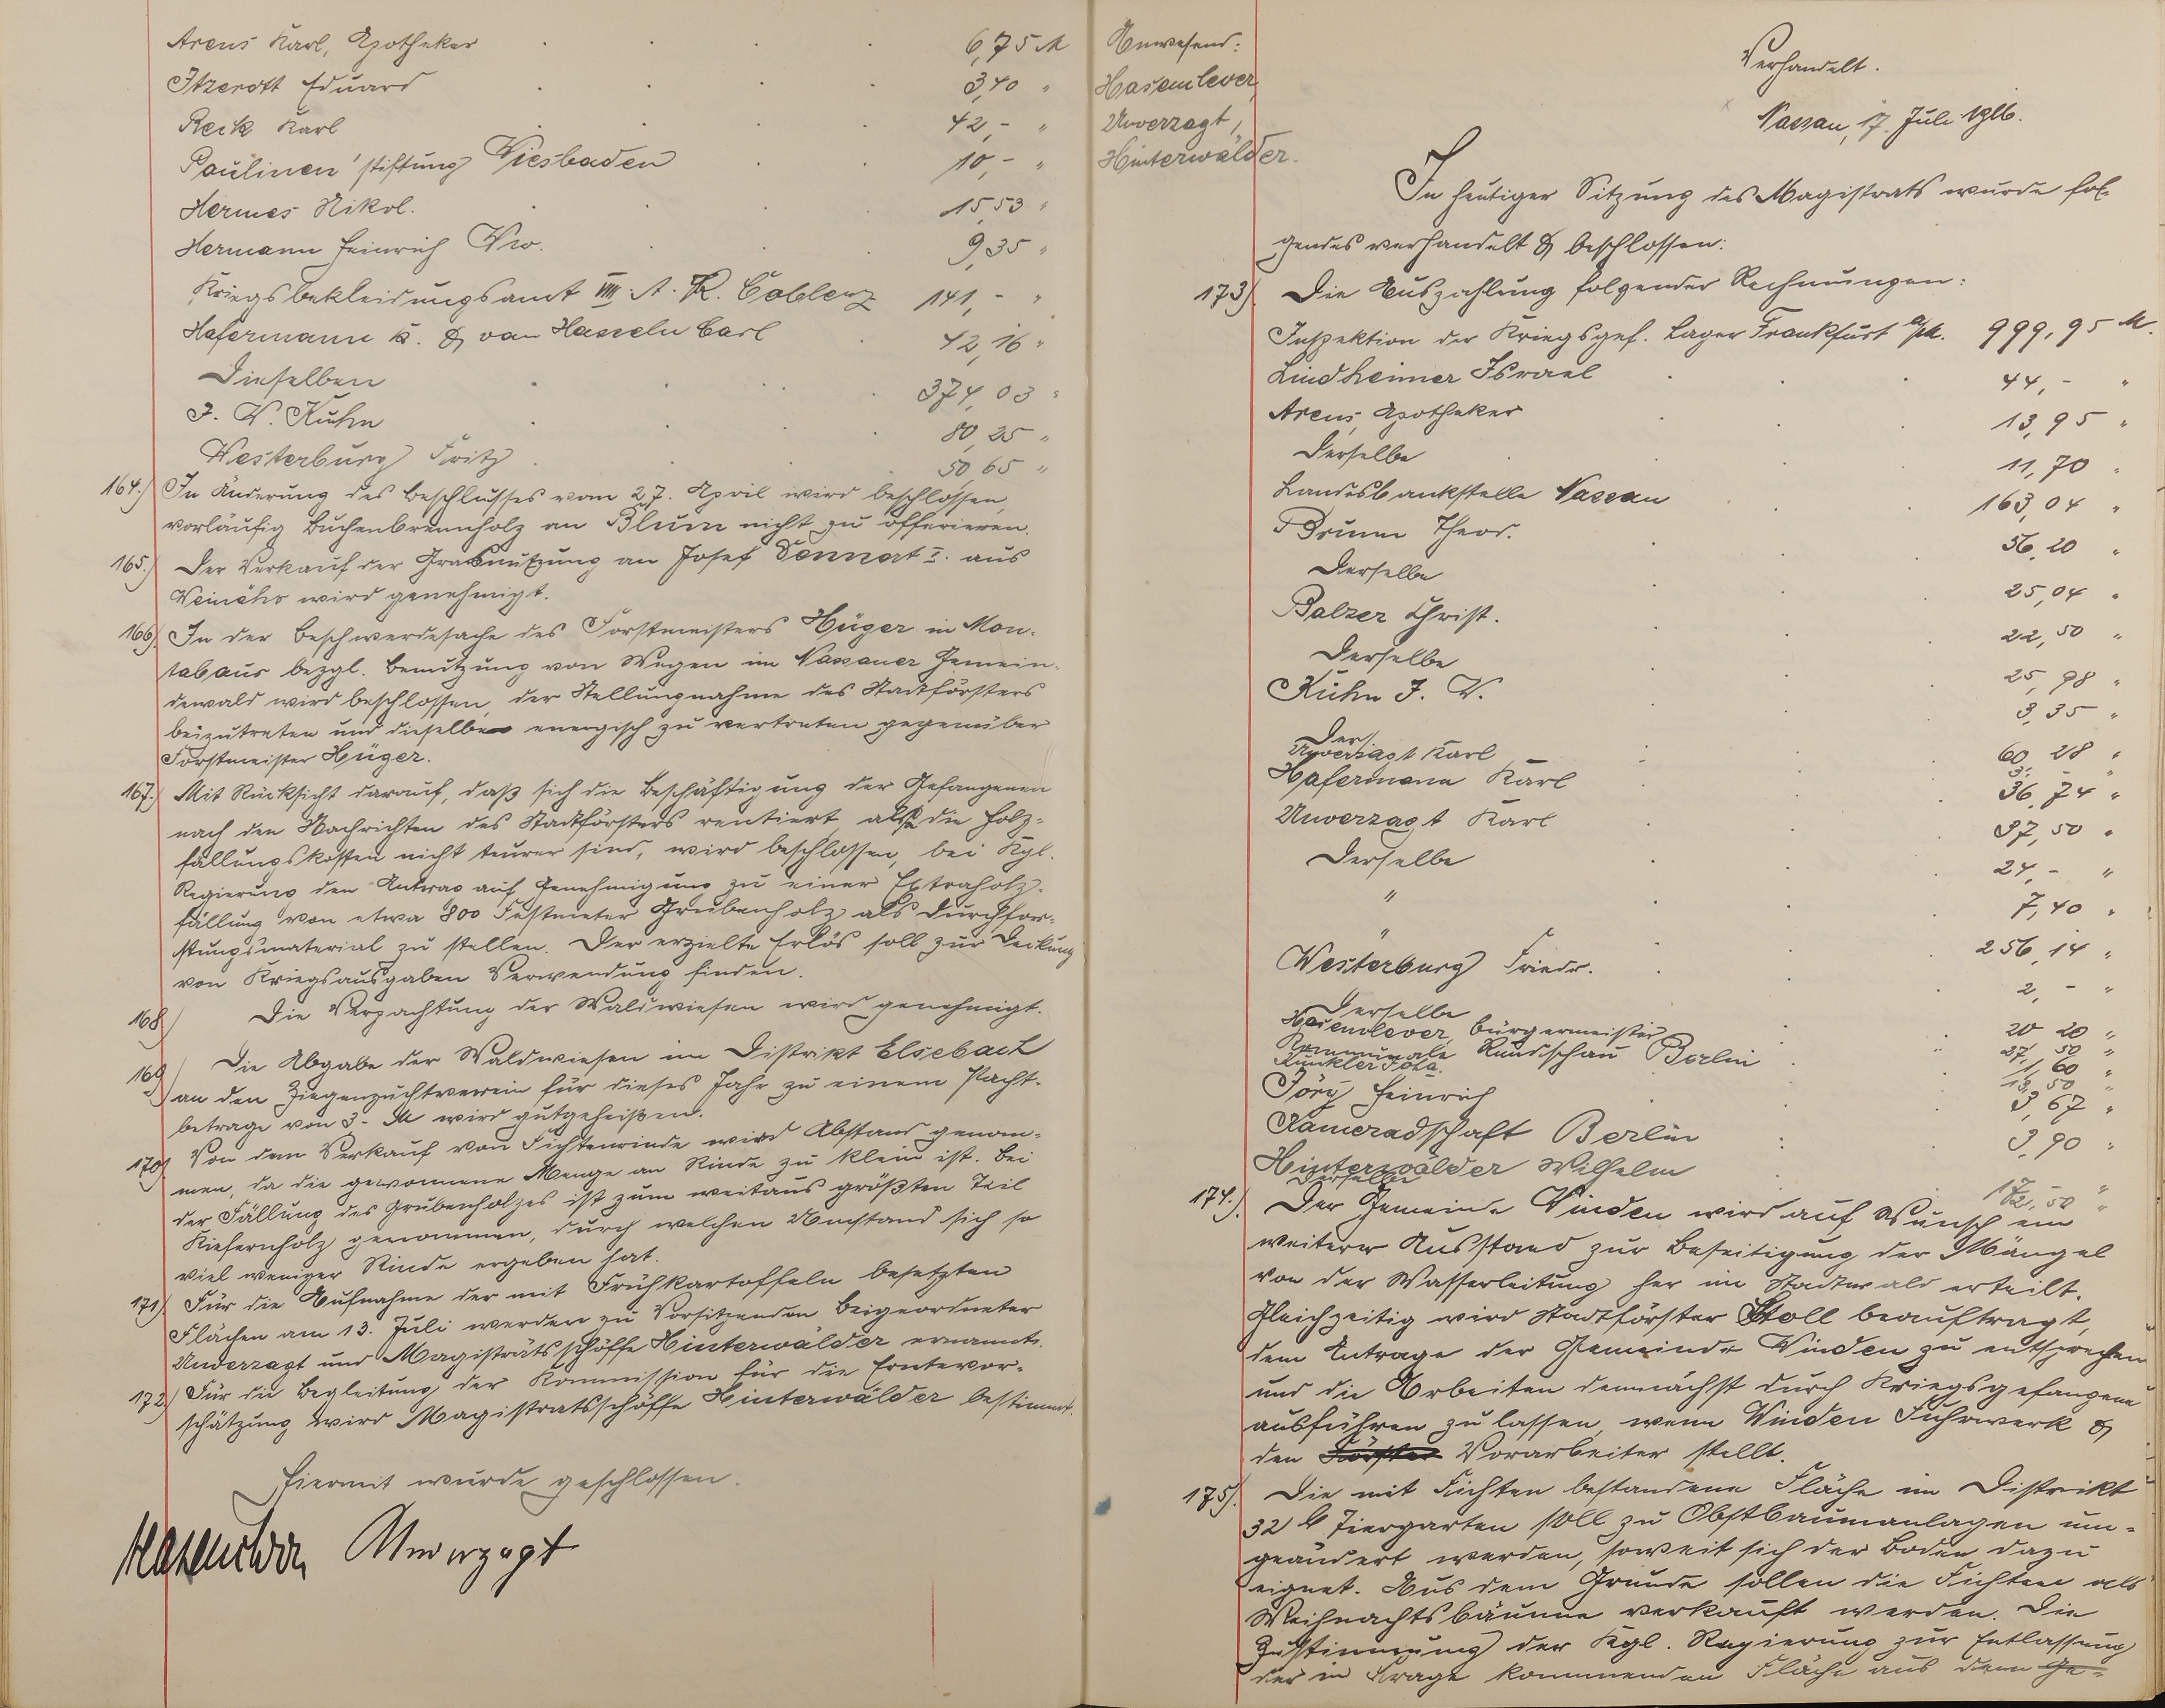 Arcus Karl, Apotheker . . . . 6,75 M
Itzerott Eduard . . . 3,40 "
Reik Karl . . . . 42,- "
Paulinen'stiftung Wiesbaden . . 10,- "
Hermes Nikol. . . . 15,53 "
Hermann Heinrich Ww. . . . 9,35 "
Kriegsbekleidungsamt VIII. A. K. Coblenz 141,- "
Hafermann K. & van Hasseln Carl . 42,16 "
Dieselben . . . . 374,03 "
J. W. Kuhn . . . 80,25 "
Westerburg Fritz . . . 50,65 "
164.) In Änderung des Beschlusses vom 27. April wird beschlossen,
vorläufig Buchenbrennholz an Blum nicht zu offerieren.
165.) Der Verkauf der Grasnutzung an Josef Dennert I. aus
Weinähr wird genehmigt.
166) In der Beschwerdesache des Forstmeisters Hüger in Mon-
tabaur bezgl. Benutzung von Wegen im Nassauer Gemein-
dewald wird beschlossen, der Stellungnahme des Stadtförsters
beizutreten und dieselbe energisch zu vertreten gegenüber
Forstmeister Hüger.
167.) Mit Rücksicht darauf, daß sich die Beschäftigung der Gefangenen
nach den Nachrichten des Stadtförsters rentiert, also die Holz-
fällungskosten nicht teurer sind, wird beschlossen, bei Kgl.
Regierung den Antrag auf Genehmigung zu einer Extraholz-
fällung von etwa 800 Festmeter Grubenholz als Durchfor-
stungsmaterial zu stellen. Der erzielte Erlös soll zur Deckung
von Kriegsausgaben Verwendung finden.
168) Die Verpachtung der Waldwiesen wird genehmigt.
169) Die Abgabe der Waldwiesen im Distrikt Elsebach
an den Ziegenzuchtverein für dieses Jahr zu einem Pacht-
betrage von 3.- M wird gutgeheißen.
170) Von dem Verkauf von Fichtenrinde wird Abstand genom-
men, da die gewonnene Menge an Rinde zu klein ist. Bei
der Fällung des Grubenholzes ist zum weitaus größten Teil
Kiefernholz genommen, durch welchen Umstand sich so
viel weniger Rinde ergeben hat.
171) Für die Aufnahme der mit Frühkartoffeln besetzten
Flächen am 13. Juli werden zu Vorsitzenden Beigeordneter
Unverzagt und Magistratsschöffe Hinterwälder ernannt.
172) Für die Begleitung der Kommission für die Erntevor-
schätzung wird Magistratsschöffe Hinterwälder bestimmt.
Hiermit wurde geschlossen.
Hasenclever Unverzagt
Anwesend:
Hasenclever,
Unverzagt,
Hinterwälder.
Verhandelt.
Nassau, 17. Juli 1916.
In heutiger Sitzung des Magistrats wurde fol-
gendes verhandelt & beschlossen:
173) Die Auszahlung folgender Rechnungen:
Inspektion der Kriegsgef. Lager Frankfurt a/M. 999,95 M.
Lindheimer Israel . . . 44,- "
Arcus, Apotheker . . 13,95 "
Derselbe . . . 11,70 "
Landesbankstelle Nassau . . 163,04 "
Brunn Theod. . . . 56,20 "
Derselbe . . . 25,04 "
Balzer Christ. . . . 22,50 "
Derselbe . . . 25,98 "
Kuhn J. W. . . . 3,35 "
Ders.
Unverzagt Karl . . . 60,28 "
Hafermann Karl . . . 36,74 "
Unverzagt Karl . . . 87,50 "
Derselbe . . . 24,- "
" . . . 7,40 "
" . . . 256,14 "
Westerburg Friedr. . . . 2,- "
Derselbe . . . 20,20 "
Hasenclever, Bürgermeister . . 37,50 "
Kommunale Rundschau Berlin . . 1,60 "
Künkler Joha. . . 13,50 "
Jöry Heinrich . . . 3,67 "
Kameradschaft Berlin . . . 3,90 "
Hinterwälder Wilhelm
Derselbe
174.) Der Gemeinde Winden wird auf Wunsch ein
weiterer Ausstand zur Beseitigung der Mängel
von der Wasserleitung her im Stadtwald erteilt.
Gleichzeitig wird Stadtförster Stoll beauftragt,
dem Antrage der Gemeinde Winden zu entsprechen
und die Arbeiten demnächst durch Kriegsgefangene
ausführen zu lassen, wenn Winden Fuhrwerk &
den Förster Vorarbeiter stellt.
175). Die mit Fichten bestandene Fläche im Distrikt
32 b Tiergarten soll zu Obstbaumanlagen um-
geändert werden, soweit sich der Boden dazu
eignet. Aus dem Grunde sollen die Fichten als
Weihnachtsbäume verkauft werden. Die
Zustimmung der Kgl. Regierung zur Entlassung
der in Frage kommenden Fläche aus dem Ge-